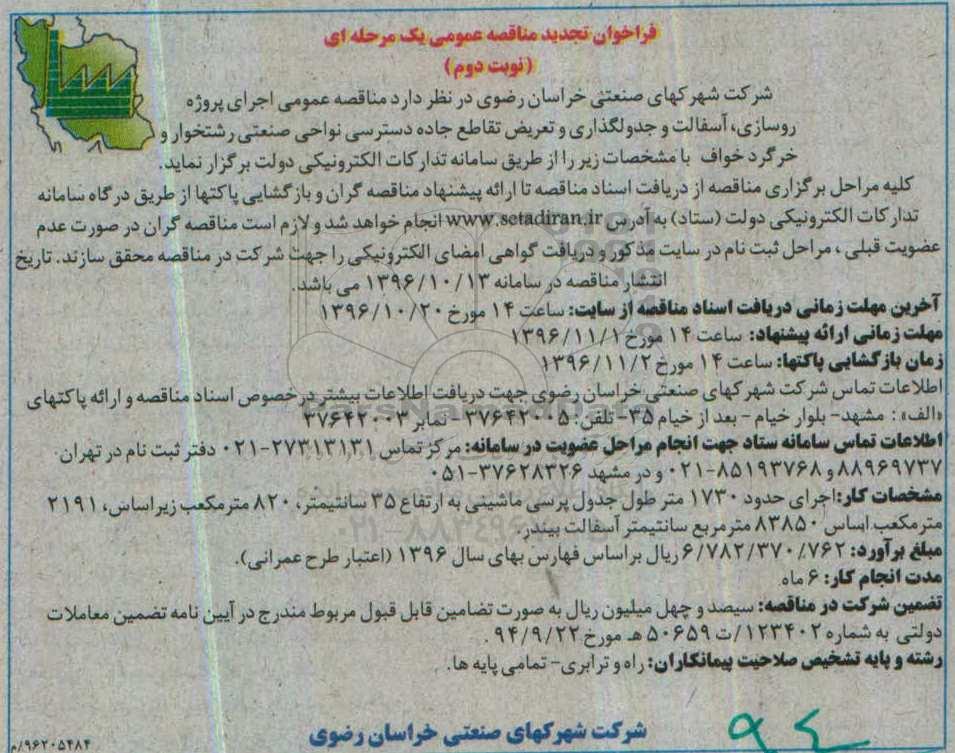 فراخوان تجدید مناقصه عمومی یک مرحله ای
(نوبت دوم)
شرکت شهرکهای صنعتی خراسان رضوی در نظر دارد مناقصه عمومی اجرای پروژه
روسازی، آسفالت و جدولگذاری و تعریض تقاطع جاده دسترسی نواحی صنعتی رشتخوار و
خرگرد خواف با مشخصات زیر را از طریق سامانه تدارکات الکترونیکی دولت برگزار نماید.
کلیه مراحل برگزاری مناقصه از دریافت اسناد مناقصه تا ارائه پیشنهاد مناقصه گران و بازگشایی پاکتها از طریق درگاه سامانه
تدارکات الکترونیکی دولت (ستاد) به آدرس www.setadiran.ir انجام خواهد شد و لازم است مناقصه گران در صورت عدم
عضویت قبلی، مراحل ثبت نام در سایت مذکور و دریافت گواهی امضای الکترونیکی را جهت شرکت در مناقصه محقق سازند. تاریخ
انتشار مناقصه در سامانه ۱۳۹۶/۱۰/۱۳ می باشد.
آخرین مهلت زمانی دریافت اسناد مناقصه از سایت: ساعت ۱۴ مورخ ۱۳۹۶/۱۰/۲۰
مهلت زمانی ارائه پیشنهاد: ساعت ۱۴ مورخ ۱۳۹۶/۱۱/۱
زمان بازگشایی پاکتها: ساعت ۱۴ مورخ ۱۳۹۶/۱۱/۲
اطلاعات تماس شرکت شهرکهای صنعتی خراسان رضوی جهت دریافت اطلاعات بیشتر در خصوص اسناد مناقصه و ارائه پاکتهای
«الف»: مشهد- بلوار خیام - بعد از خیام ۳۵- تلفن: ۳۷۶۴۲۰۰۵ - نمابر ۳۷۶۴۲۰۰۳
اطلاعات تماس سامانه ستاد جهت انجام مراحل عضویت در سامانه: مرکز تماس ۲۷۳۱۳۱۳۱-۰۲۱ دفتر ثبت نام در تهران
۸۸۹۶۹۷۳۷ و ۸۵۱۹۳۷۶۸-۰۲۱ و در مشهد ۳۷۶۲۸۳۲۶-۰۵۱
مشخصات کار: اجرای حدود ۱۷۳۰ متر طول جدول پرسی ماشینی به ارتفاع ۳۵ سانتیمتر، ۸۲۰ مترمکعب زیراساس، ۲۱۹۱
مترمکعب اساس ۸۳۸۵۰ مترمربع سانتیمتر آسفالت بیندر.
مبلغ برآورد: ۶/۷۸۲/۳۷۰/۷۶۲ ریال بر اساس فهارس بهای سال ۱۳۹۶ (اعتبار طرح عمرانی).
مدت انجام کار: ۶ ماه
تضمین شرکت در مناقصه: سیصد و چهل میلیون ریال به صورت تضامین قابل قبول مربوط مندرج در آیین نامه تضمین معاملات
دولتی به شماره ۱۲۳۴۰۲/ت ۵۰۶۵۹ هـ مورخ ۹۴/۹/۲۲.
رشته و پایه تشخیص صلاحیت پیمانکاران: راه و ترابری- تمامی پایه ها.
شرکت شهرکهای صنعتی خراسان رضوی
۹۶۲۰۵۴۸۴/م